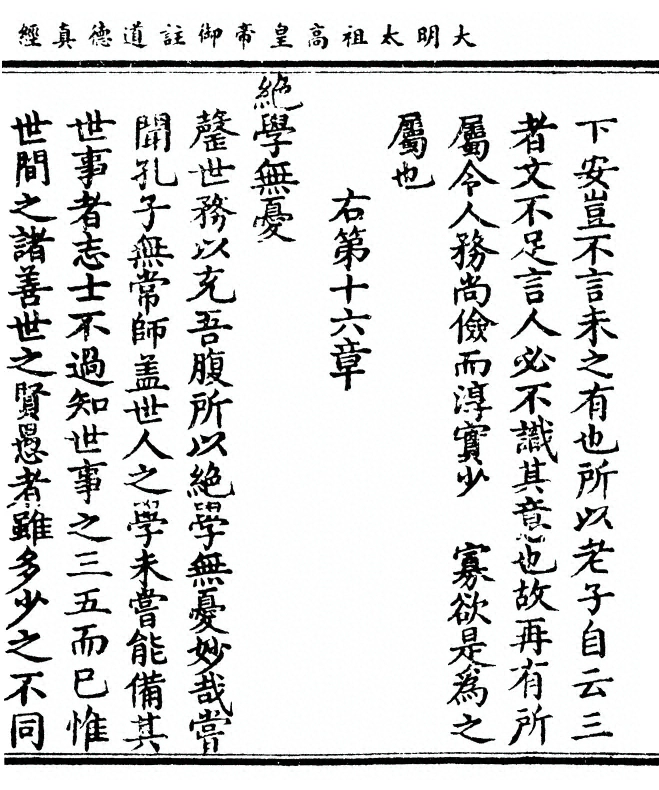 大明太祖高皇帝御註道德真經
下安豈不言未之有也所以老子自云三
者文不足言人必不識其意也故再有所
屬令人務尚儉而淳實少 寡欲是為之
屬也
右第十六章
絕學無憂
罄世務以充吾腹所以絕學無憂妙哉嘗
聞孔子無常師盖世人之學未嘗能備其
世事者志士不過知世事之三五而已惟
世間之諸善世之賢愚者雖多少之不同